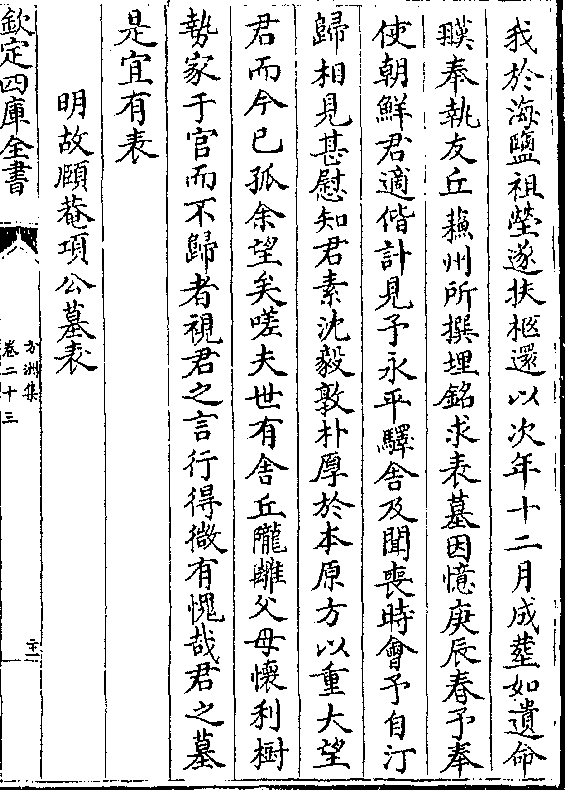 我於海鹽祖塋遂扶柩還以次年十二月成塟如遺命
瑛奉執友丘蘓州所撰埋銘求表墓因憶庚辰春予奉
使朝鮮君適偕計見予永平驛舍及聞喪時會予自汀
歸相見甚慰知君素沈毅敦朴厚於本原方以重大望
君而今已孤余望矣嗟夫世有舍丘隴離父母懷利樹
勢家于官而不歸者視君之言行得㣲有愧哉君之墓
是宜有表
明故頥菴項公墓表
欽定四庫全書
方洲集
卷二十三